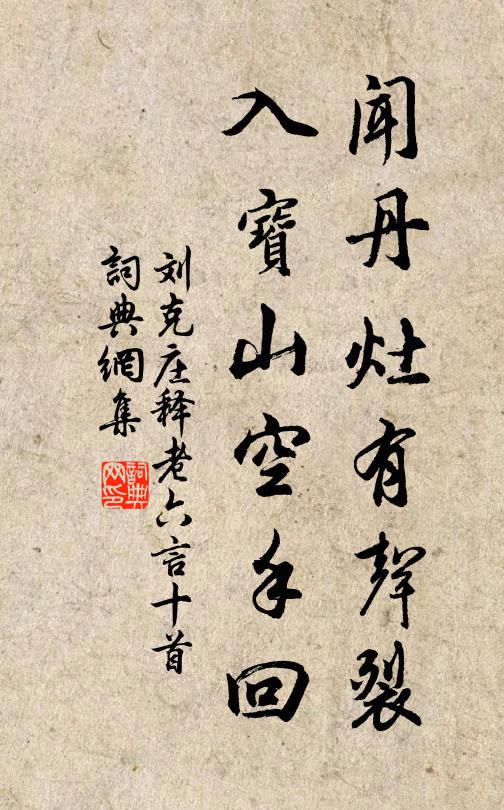 聞丹灶有聲裂
入寶山空手回
刘克庄释老六言十首
詞典網集
詞典网印